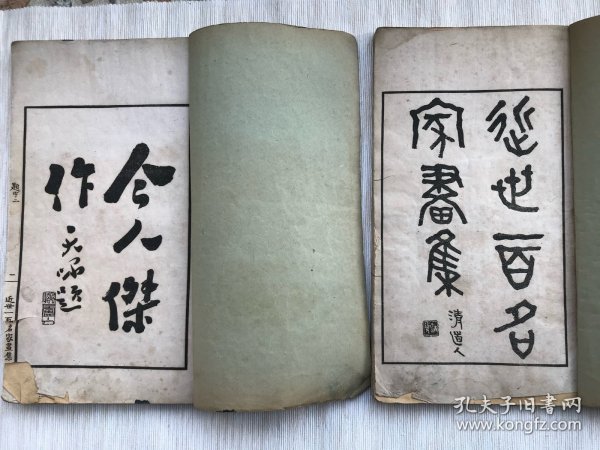 近世一百名
家畫集
清道人
今人傑
作
題
二
近世一百名家畫集
孔夫子旧書网
www.kongfz.com